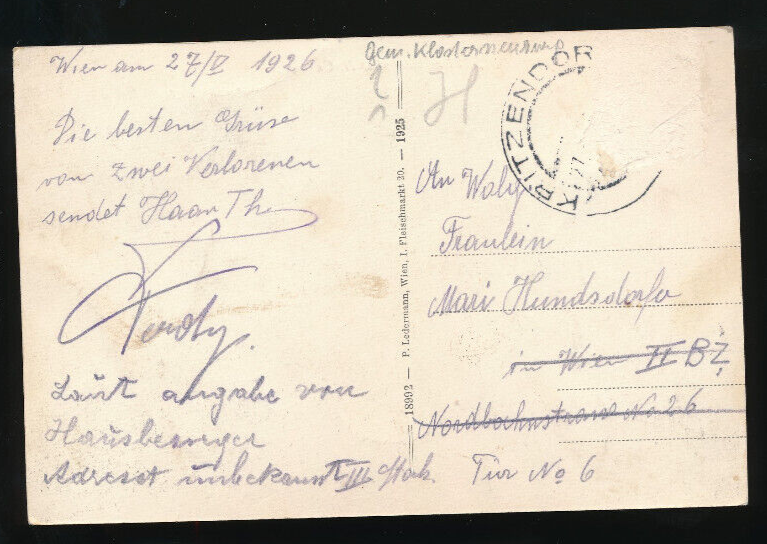 Wien am 27/V 1926
Die besten Grüse
von zwei Verlorenen
sendet Haar Th
Ferdy.
Laut angabe von
Hausbesorger
Adresat unbekannt
18992 — P. Ledermann, Wien, I. Fleischmarkt 20. — 1925
Gem. Klosterneuburg
KRITZENDORF
An Wohl
Fraulein
Mari Hundsdorfer
in Wien II BZ
Nordbahnstrasse No 26
III Stok. Tür No 6